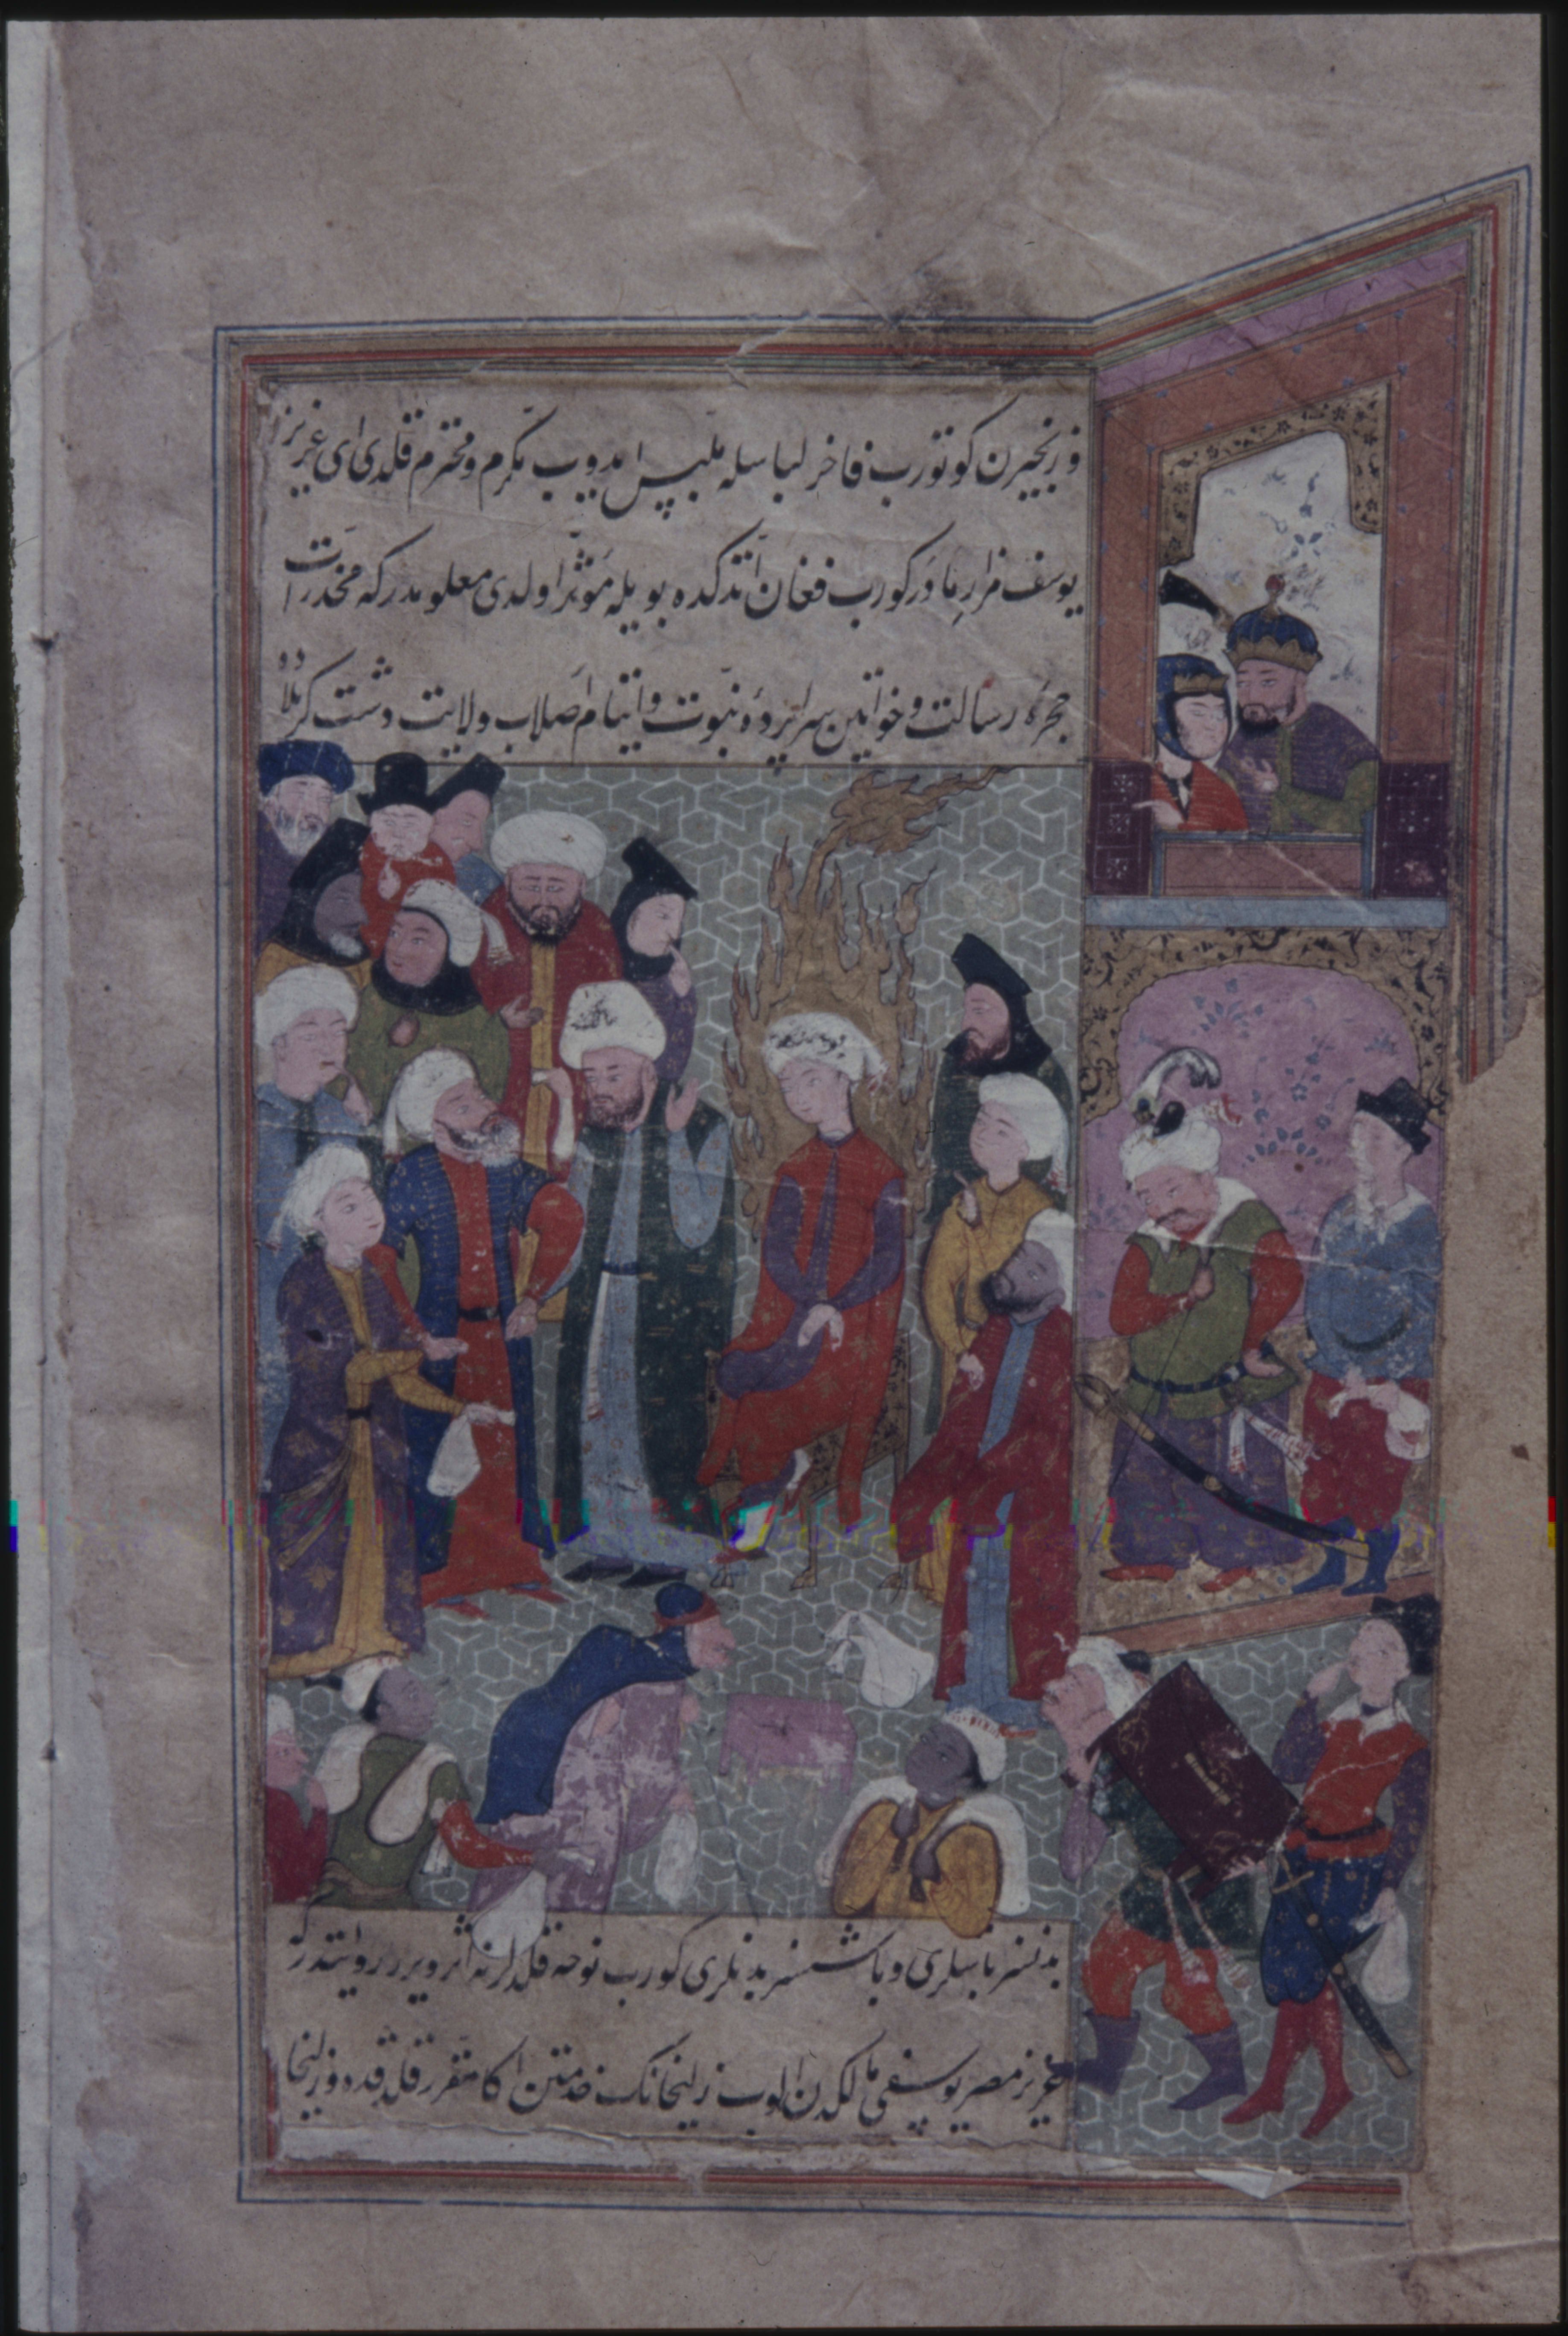 و زنجیرن کوتورب فاخر لباسله ملبس ایدوب مکرم و محترم قلدی ای عزیز
یوسف مزار مادر کورب فغان اتدکده بویله مؤثر اولدی معلومدرکه مخدرات
حجرهٔ رسالت و خواتین سراپردهٔ نبوت و ایتام اصلاب ولایت دشت کربلاده
بدنسز باشلری و باشسز بدنلری کورب نوحه قلدلر نه اثر ویرر روایتدرکه
عزیز مصر یوسفی مالکدن الوب زلیخانک خدمتن اکا مقرر قلدقده زلیخا